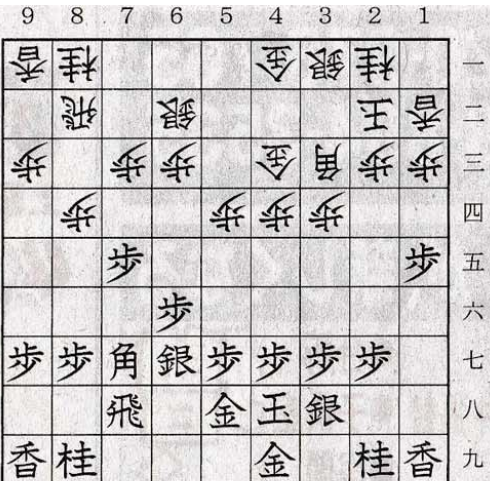 9 8 7 6 5 4 3 2 1
香 桂 金 銀 桂 一
飛 銀 王 香 二
歩 歩 歩 金 角 歩 歩 三
歩 歩 歩 歩 四
歩 歩 五
歩 六
歩 歩 角 銀 歩 歩 歩 歩 七
飛 金 玉 銀 八
香 桂 金 桂 香 九